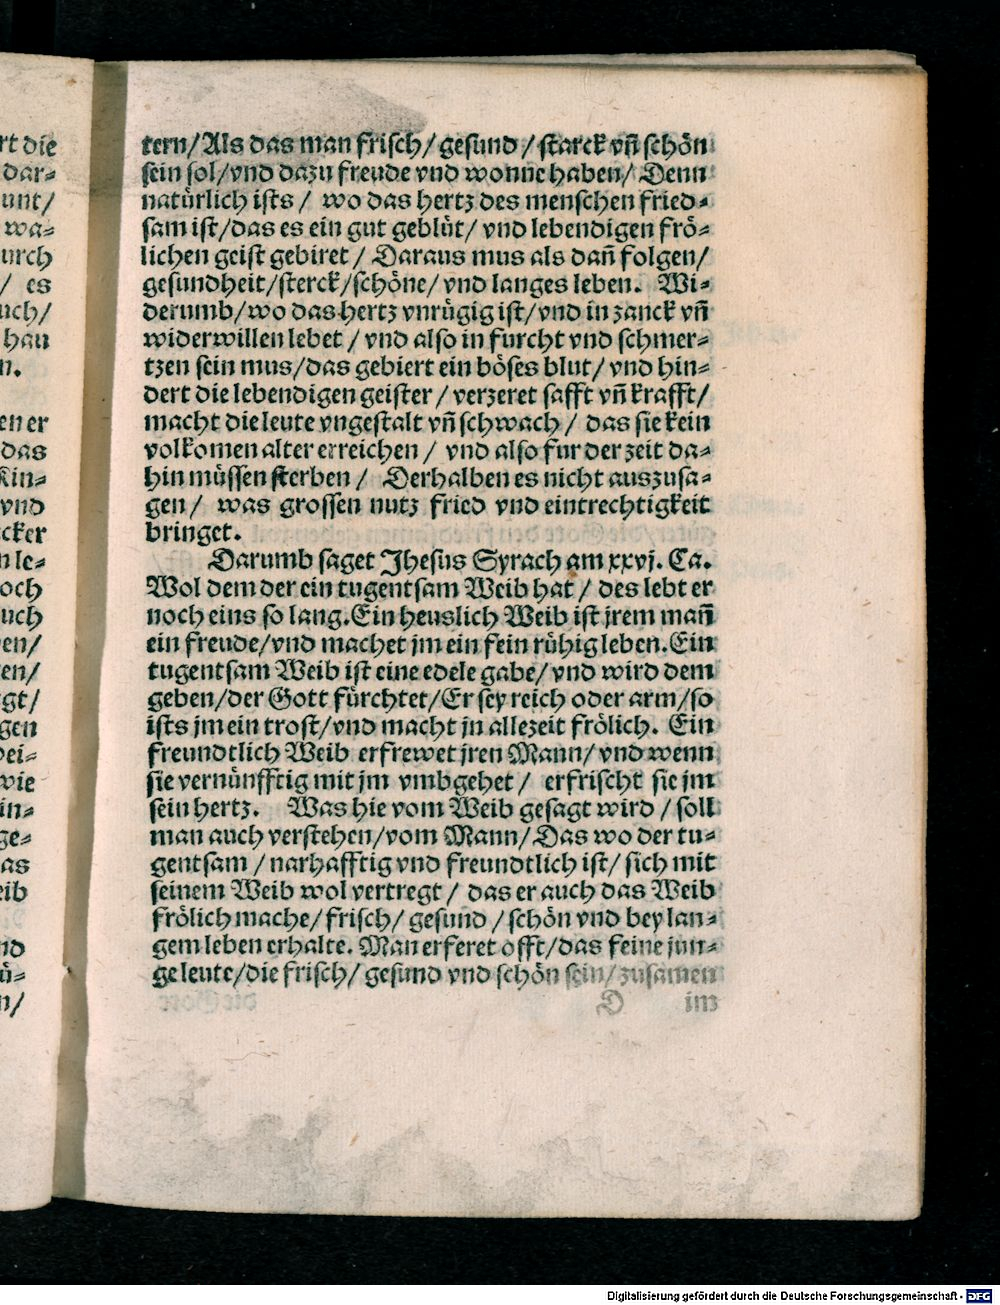 tern/Als das man frisch/gesund/starck vñ schön
sein sol/vnd dazu freude vnd wonne haben/ Denn
natürlich ists / wo das hertz des menschen fried=
sam ist/das es ein gut geblüt/ vnd lebendigen frö=
lichen geist gebiret / Daraus mus als dañ folgen/
gesundheit/sterck/schöne/vnd langes leben. Wi=
derumb/wo das hertz vnrügig ist/vnd in zanck vñ
widerwillen lebet / vnd also in furcht vnd schmer=
tzen sein mus/das gebiert ein böses blut/ vnd hin=
dert die lebendigen geister / verzeret safft vñ krafft/
macht die leute vngestalt vñ schwach / das sie kein
volkomen alter erreichen / vnd also fur der zeit da=
hin müssen sterben / Derhalben es nicht auszusa=
gen / was grossen nutz fried vnd eintrechtigkeit
bringet.
Darumb saget Jhesus Syrach am xxvj. Ca.
Wol dem der ein tugentsam Weib hat / des lebt er
noch eins so lang. Ein heuslich Weib ist jrem mañ
ein freude/vnd machet jm ein fein rühig leben. Ein
tugentsam Weib ist eine edele gabe/vnd wird dem
geben/der Gott fürchtet/Er sey reich oder arm/so
ists jm ein trost/vnd macht jn allezeit frölich. Ein
freundtlich Weib erfrewet jren Mann/ vnd wenn
sie vernünfftig mit jm vmbgehet / erfrischt sie jm
sein hertz. Was hie vom Weib gesagt wird / soll
man auch verstehen/vom Mann/ Das wo der tu=
gentsam / narhafftig vnd freundtlich ist/ sich mit
seinem Weib wol vertregt / das er auch das Weib
frölich mache/ frisch/ gesund / schön vnd bey lan=
gem leben erhalte. Man erferet offt/das feine jun=
ge leute/die frisch/ gesund vnd schön sein/zusamen
D im
rt die
dar=
unt/
wa=
urch
/ es
uch/
hau
n.
en er
das
Kin=
vnd
cker
n le=
och
uch
en/
en/
gt/
gen
bei=
wie
in=
ge=
as
eib
nd
ü=
n/
Digitalisierung gefördert durch die Deutsche Forschungsgemeinschaft - DFG